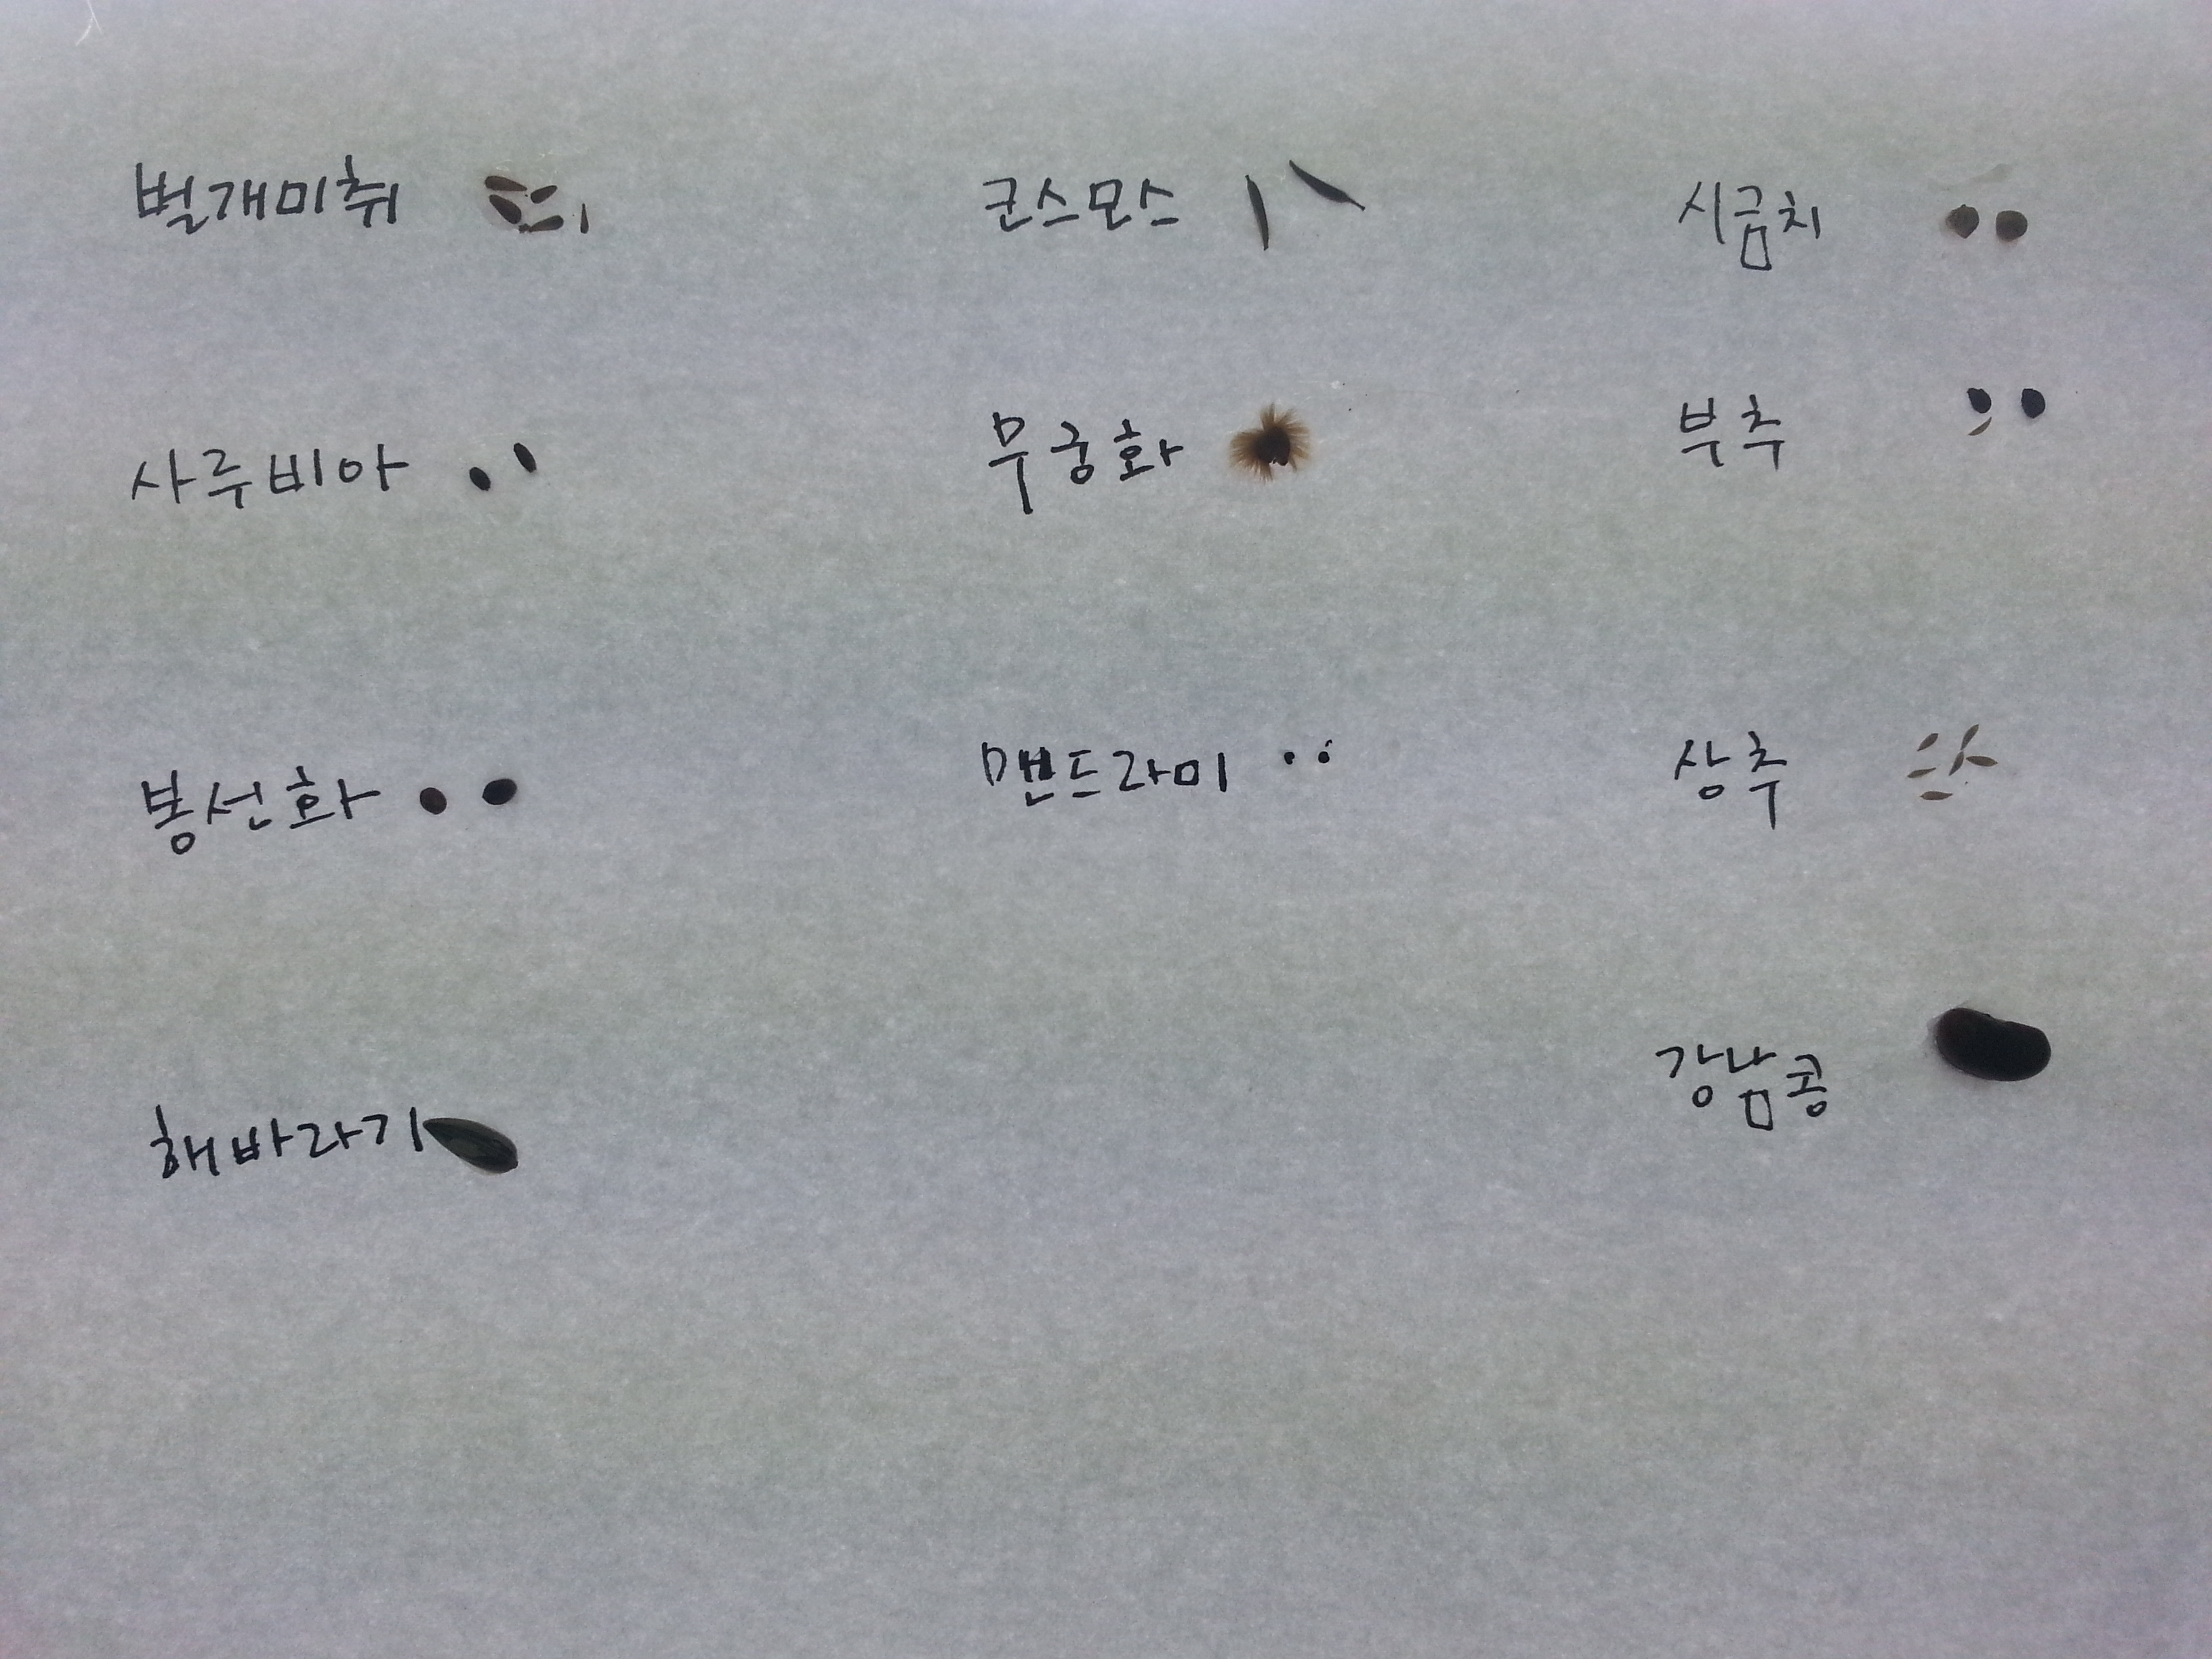 벌개미취 코스모스 시금치
사루비아 무궁화 부추
봉선화 맨드라미 상추
해바라기 강남콩